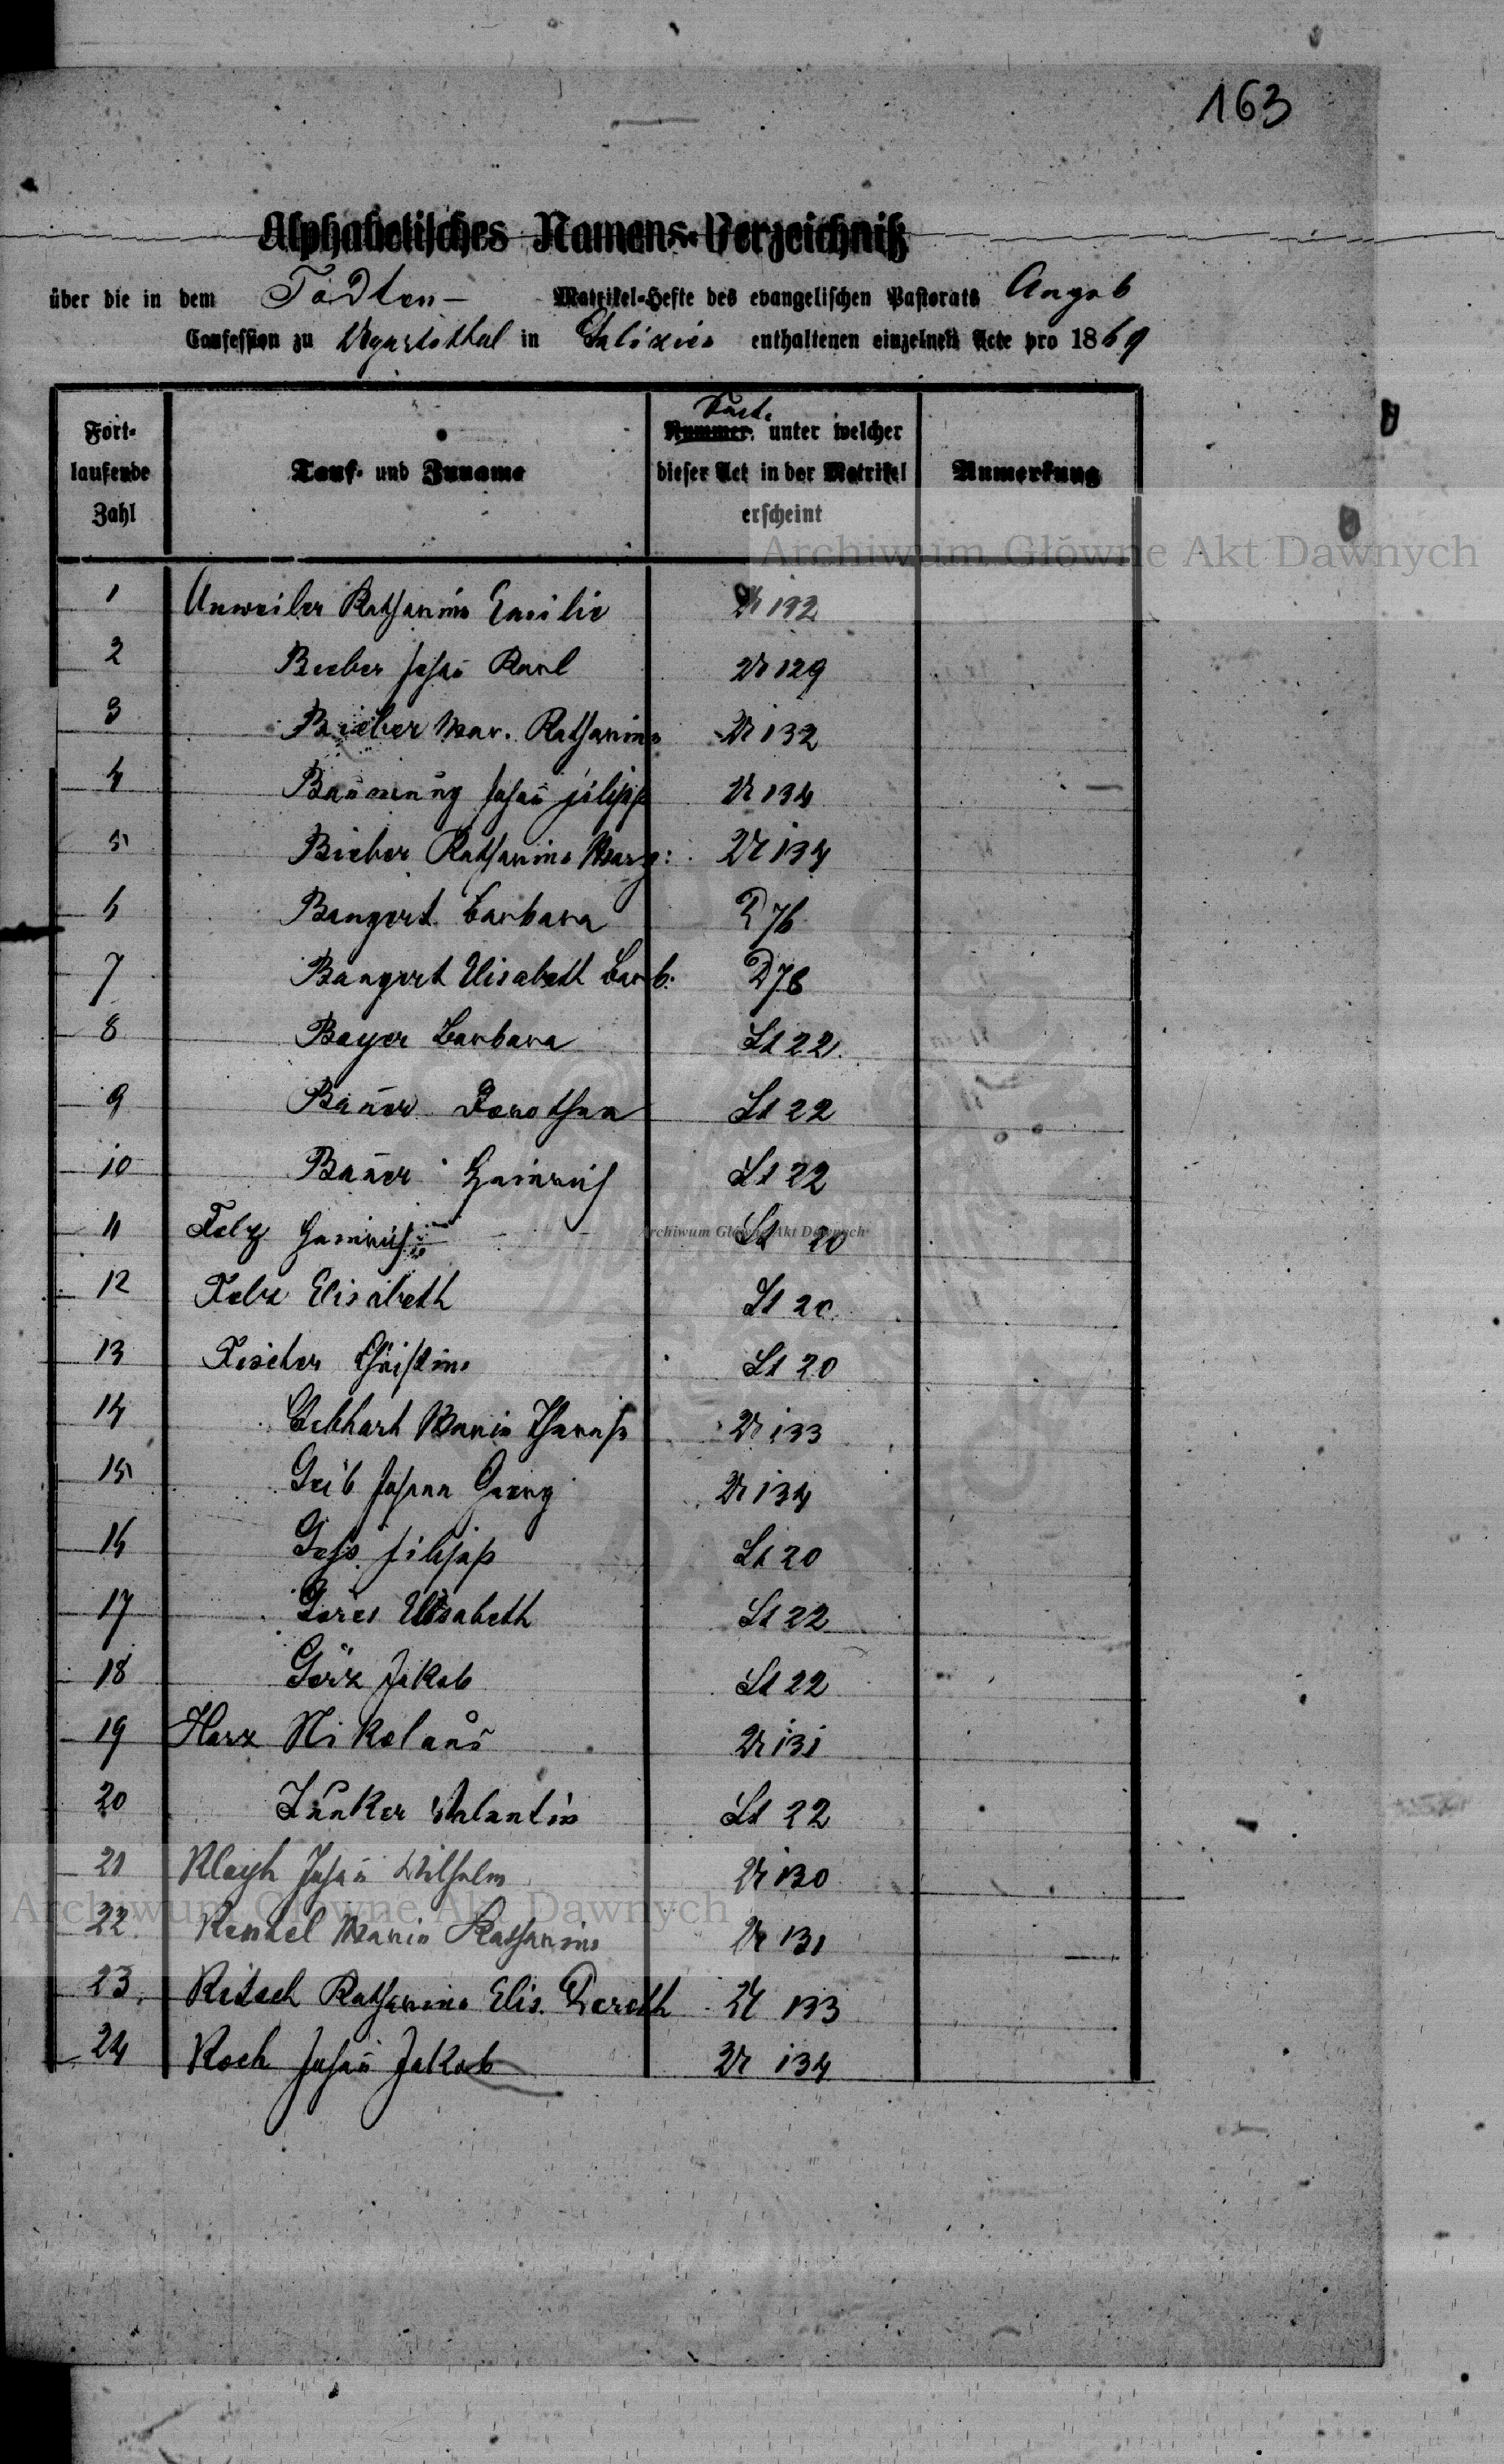 163
Alphabetisches Namens-Verzeichniß
über die in dem Todten- Matrikel-Hefte des evangelischen Pastorats Augsb
Confession zu Ugartsthal in Galizien enthaltenen einzelnen Acte pro 1869
Fort-
laufende
Zahl
Tauf- und Zuname
Nummer unter welcher
dieser Act in der Matrikel
erscheint
Anmerkung
1 Unweiler Katharina Emilie 132
2 Bieber Johan̄ Karl 129
3 Bieber Mar. Katharina 132
4 Johan̄ Filipp 134
5 Bieber Katharina Marg: 134
6 Bangert Barbara D 76
7 Bangert Elisabeth Barb. D 78
8 Bayer Barbara St 22
9 Bauer Dorothea St 22
10 Bauer Heinrich St 22
11 Felz Heinrich St 20
12 Felz Elisabeth St 20
13 Fischer Christina St 20
14 Gebhart Maria 133
15 Geib Johann Georg 134
16 Filipp St 20
17 Gores Elisabeth St 22
18 Görz Jakob St 22
19 Harz Nikolaus 131
20 Junker Valentin St 22
21 Johan̄ Wilhelm 130
22. Kendel Maria Katharina 131
23. Kitsch Katharina Elis. Doroth 133
24 Koch Johan̄ Jakob 134
Archiwum Główne Akt Dawnych
Archiwum Główne Akt Dawnych
Archiwum Główne Akt Dawnych